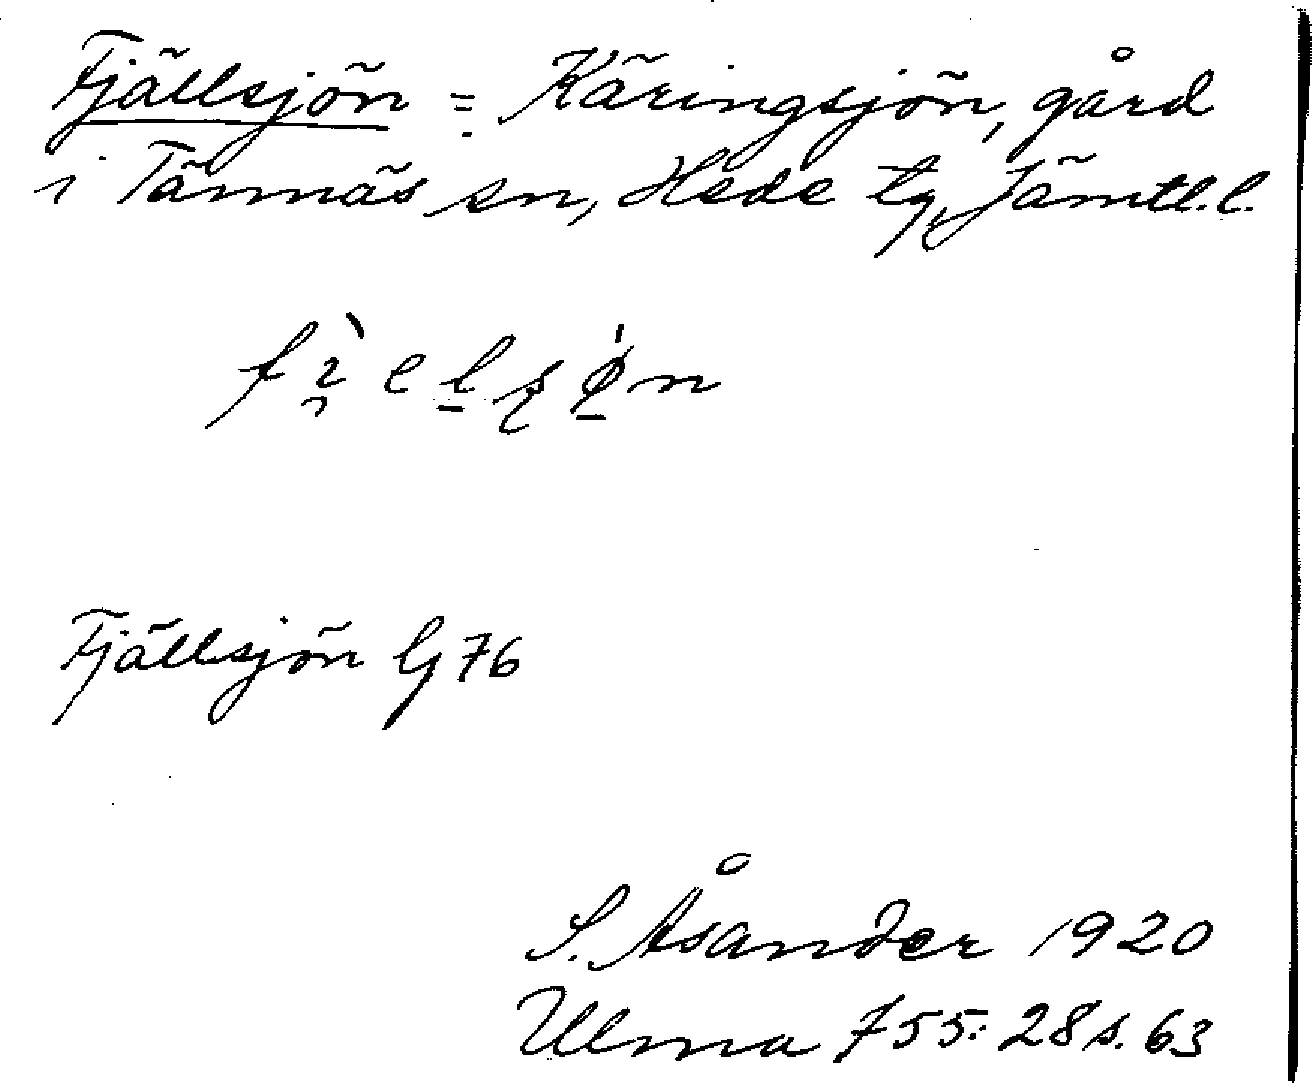 Fjällsjön = Käringsjön, gård
i Tännäs sn, Hede tg, Jämtl.l.
Fjällsjön G 76
S. Åsander 1920
Ulma 755:28 s. 63